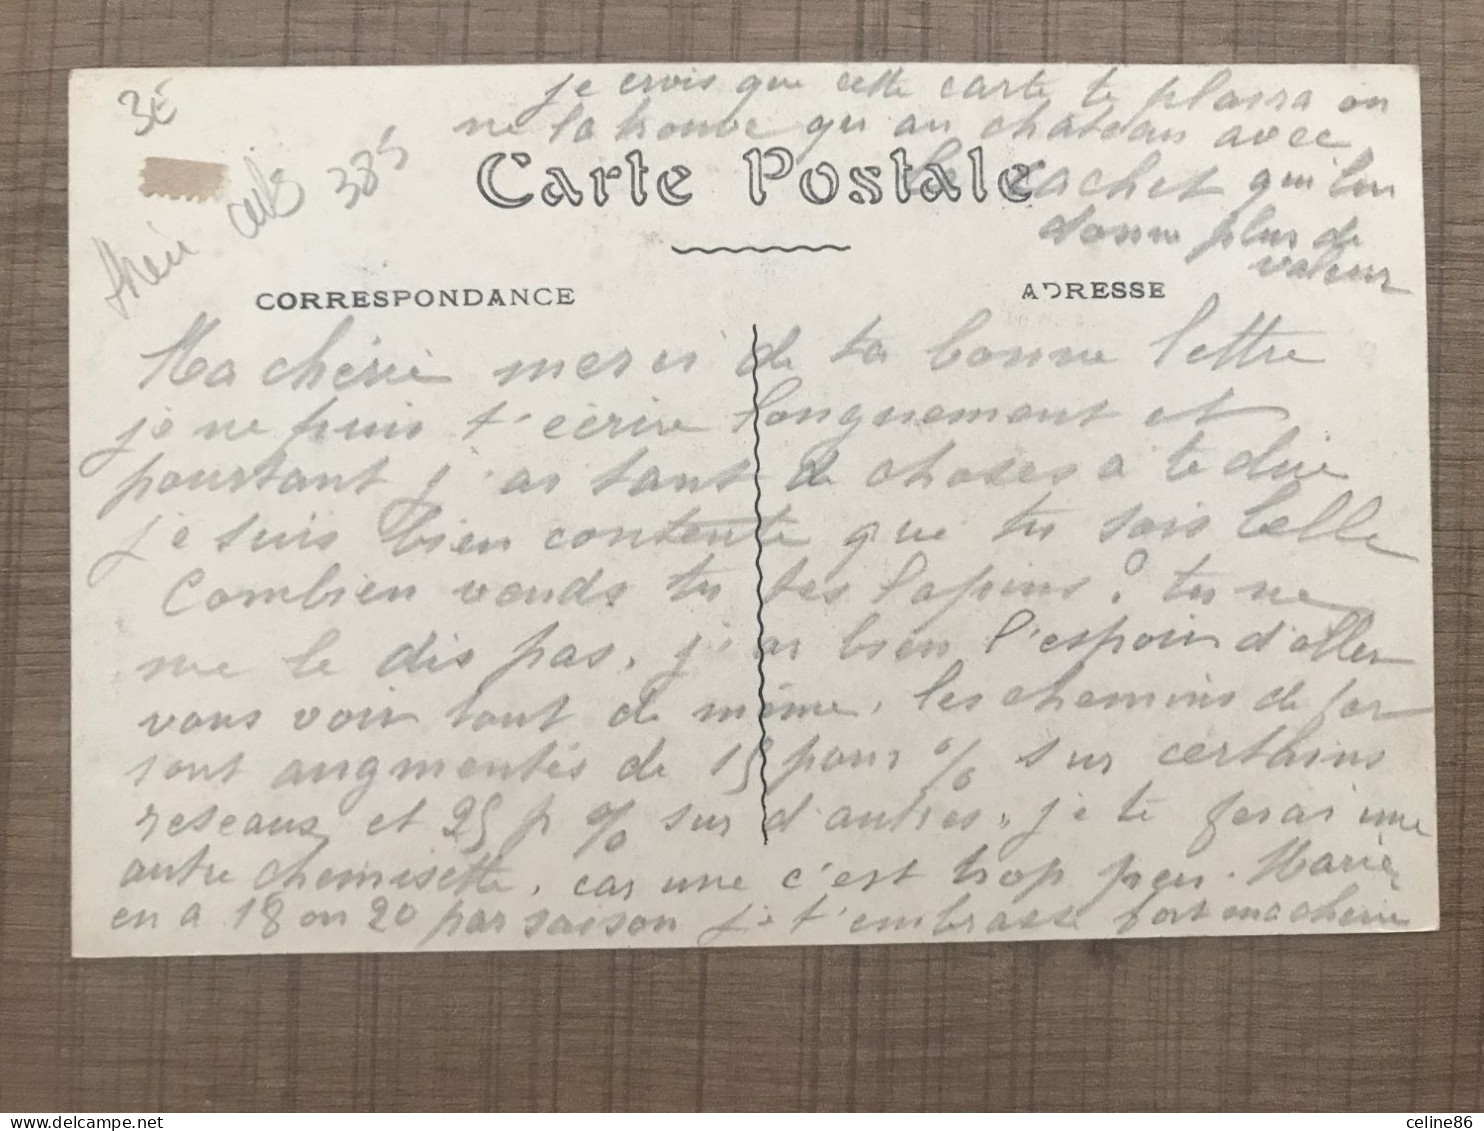 3€
je crois que cette carte te plaira on
ne la trouve qu'au château avec
Carte Postale
le cachet qui lui
donne plus de
valeur
385
CORRESPONDANCE
ADRESSE
Ma chérie merci de ta bonne lettre
je ne puis t'écrire longuement et
pourtant j'ai tant de choses a te dire
je suis bien contente que tu sois belle
Combien vends tu tes lapins? tu ne
me le dis pas. j'ai bien l'espoir d'aller
vous voir tout de même. les chemins de fer
sont augmentés de 15 pour % sur certains
reseaux et 25 p % sur d'autres. je te ferai une
autre chemisette, car une c'est trop peu. Marie
en a 18 ou 20 par saison je t'embrasse fort ma cherie
celine86